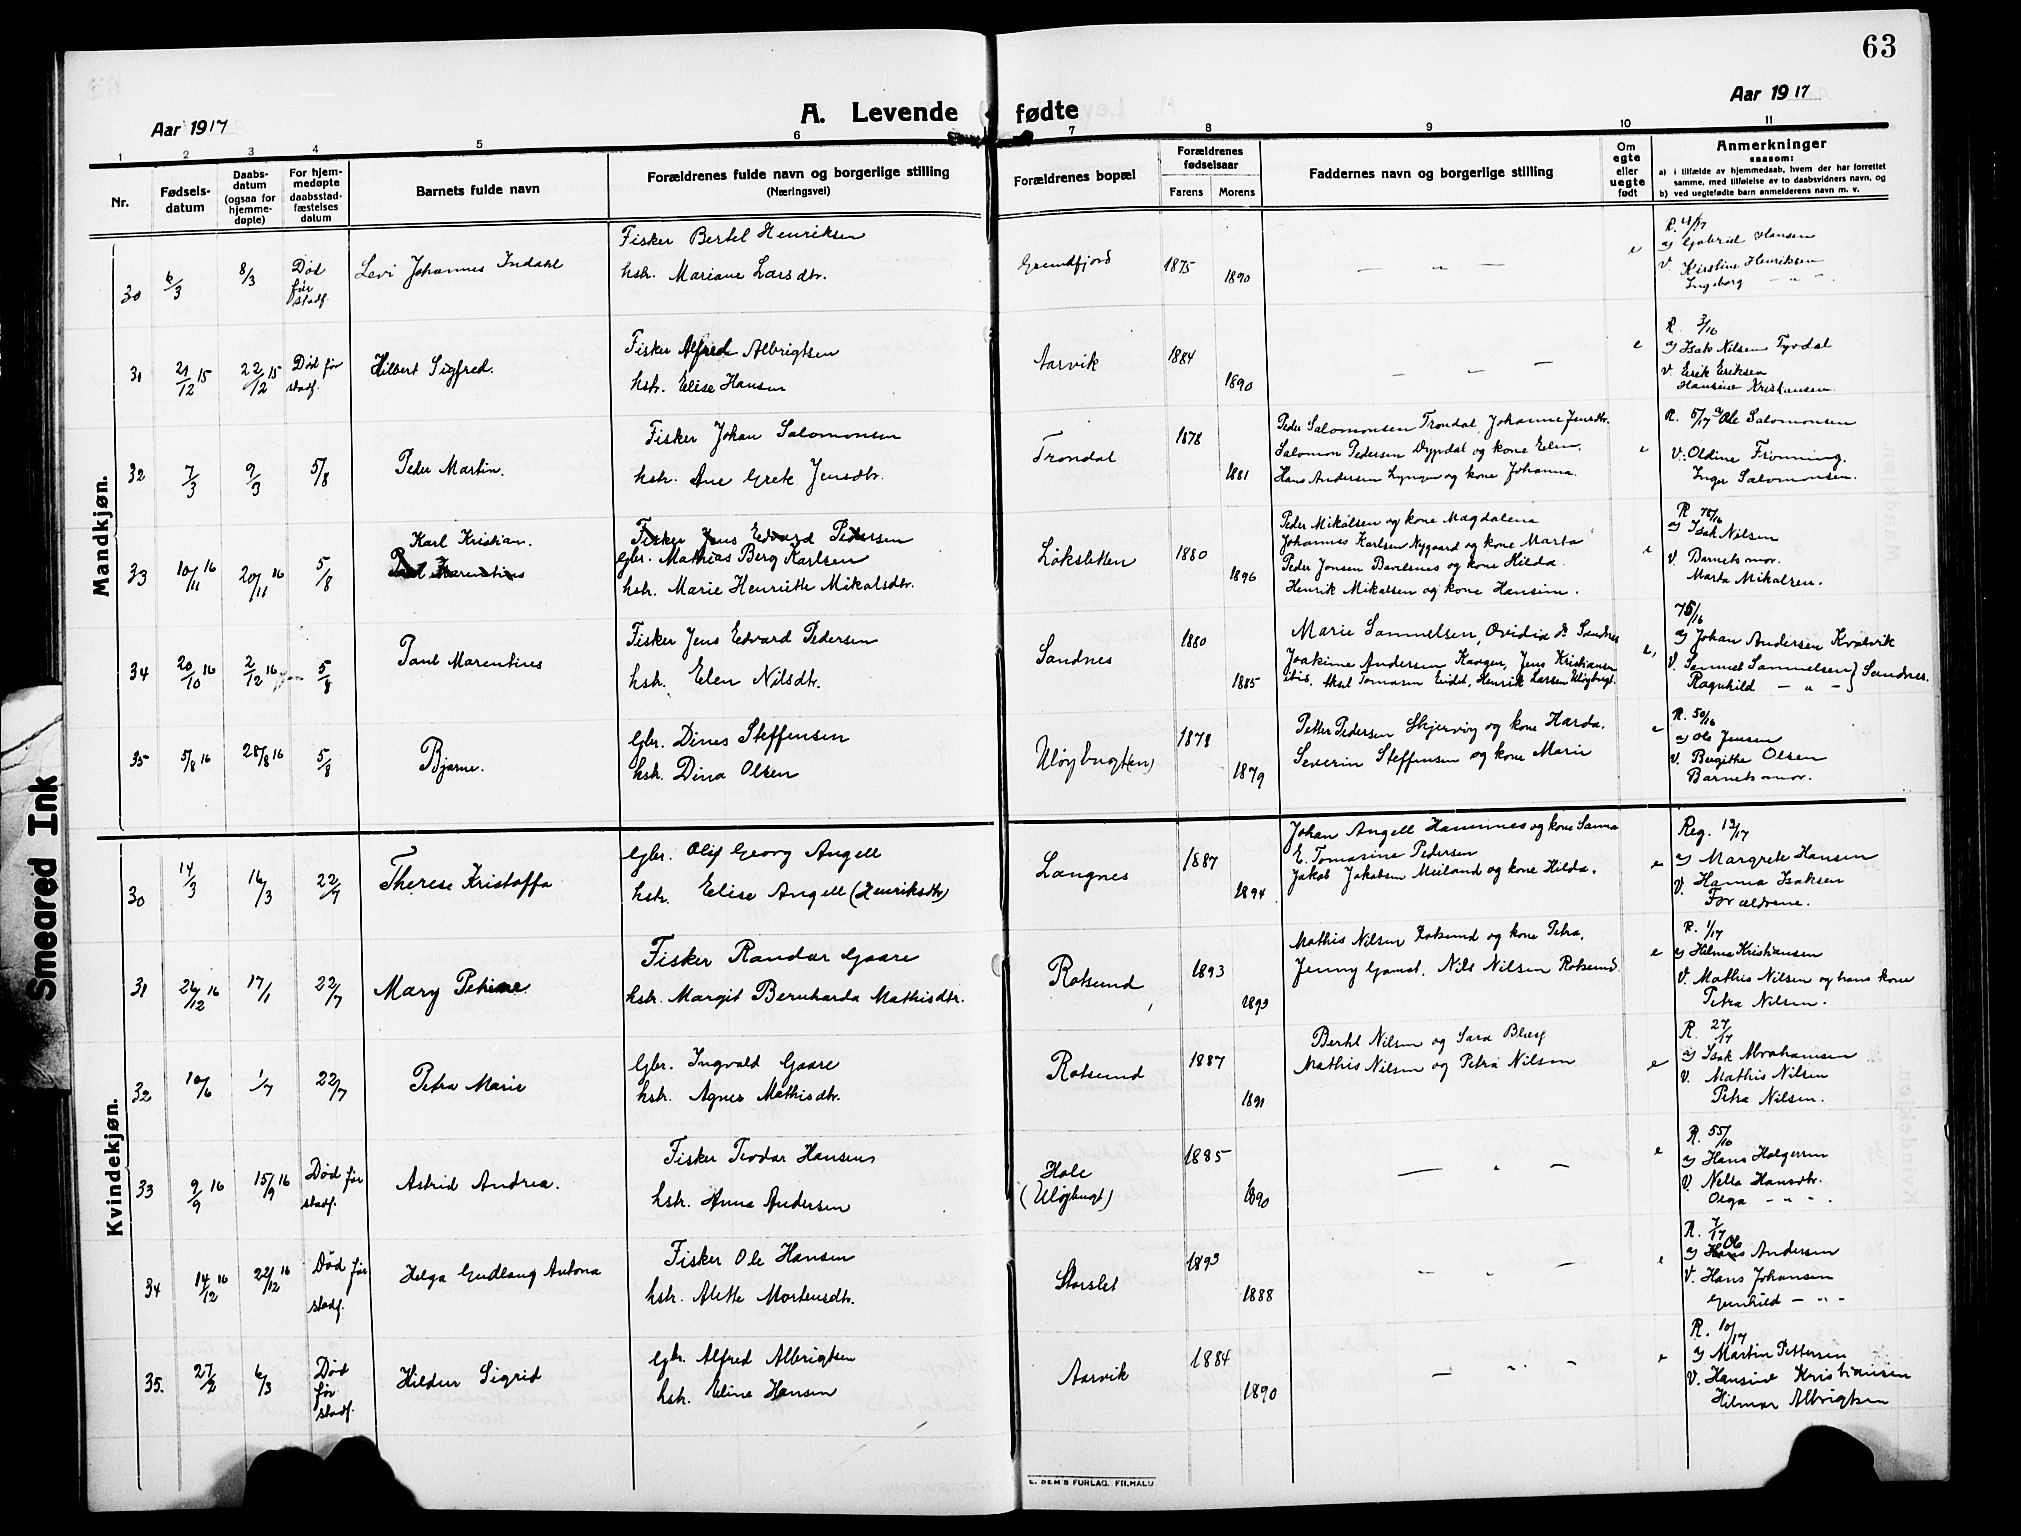 63
Aar 1917
A. Levende fødte
Aar 1917
1 2 3 4 5 6 7 8 9 10 11
Nr.
Fødsels-
datum
Daabs-
datum
(ogsaa for
hjemme-
døpte)
For hjem-
medøpte
daabsstad-
fæstelses
datum
Barnets fulde navn
Forældrenes fulde navn og borgerlige stilling
(Næringsvei)
Forældrenes bopæl
Forældrenes
fødselsaar
Farens Morens
Faddernes navn og borgerlige stilling
Om
egte
eller
uegte
født
Anmerkninger
saasom:
a) i tilfælde av hjemmedaab, hvem der har forrettet
samme, med tilføielse av to daabsvidners navn, og
b) ved uegtefødte barn anmelderens navn m. v.
Mandkjøn.
30 6/3 8/3 Død før stadf. Levi Johannes Indahl
Fisker Bertel Henriksen
hstr. Mariane Larsdtr.
Grundfjord 1875 1890 — " — e
a) Gabriel Hansen
V. Kirstine Henriksen
Ingeborg — " —
31 21/12 15 22/12 15 Død før stadf. Hilbert Sigfred.
Fisker Alfred Albrigtsen
hstr. Elise Hansen
Aarvik 1884 1890 — " — e
R. 3/16
a) Isak Nilsen Tyvdal
V. Erik Eriksen
Hansine Kristiansen.
32 7/3 9/3 5/8 Peder Martin.
Fisker Johan Salomonsen
hstr. Ane Grete Jensdtr.
Trondal 1878 1881
Peder Salomonsen Trondal, Johanne Jensdtr.
Salomon Pedersen Dypdal og kone Elen.
Hans Andersen Lyngen og kone Johanna.
e
R. 6/17 a) Ole Salomonsen
V. Oldine Frønning.
Inger Salomonsen.
33 10/11 16 20/11 16 5/8 Karl Kristian.
Fisker Jens Edvard Pedersen
Gbr. Mathias Berg Karlsen
hstr. Marie Henriette Mikalsdtr.
Løksletten 1880 1896
Peder Mikalsen og kone Magdalena
Johannes Karlsen Nygaard og kone Marta
Peder Jonsen Bavelsnes og kone Hilda.
Henrik Mikalsen og kone Hansine.
e
R. 78/16
a) Isak Nilsen
V. Barnets mor.
Marta Mikalsen.
34 20/10 16 2/12 16 5/8 Paul Marentines
Fisker Jens Edvard Pedersen
hstr. Elen Nilsdtr.
Sandnes 1880 1885
Marie Sammelsen, Ovidia do Sandnes
Joakime Andersen Kaagen, Jens Kristiansen
ibid. Aksel Tomasen Eidet, Henrik Larsen Uløybugt.
e,
75/16
a) Johan Andersen Kvalvik
V. Samuel Sammelsen } Sandnes.
Ragnhild — " — }
35 5/8 16 28/8 16 5/8 Bjarne.
Gbr. Dines Steffensen
hstr. Dina Olsen
Uløybugt(en) 1878 1879
Petter Pedersen Skjervøy og kone Harda.
Severin Steffensen og kone Marie
e
R. 50/16
a) Ole Jensen
V. Bergitte Olsen
Barnets mor.
Kvindekjøn.
30 14/3 16/3 22/7 Therese Kristoffa
Gbr. Olif Georg Angell
hstr. Elise Angell (Henriksdtr)
Langnes 1887 1894
Johan Angell Hamnnes og kone Sanna
E. Tomasine Pedersen
Jakob Jakobsen Meiland og kone Hilda.
e
Reg. 13/17
a) Margrete Hansen
V. Hanna Isaksen
Forældrene.
31 26/12 16 17/1 22/7 Mary Petrine
Fisker Randar Gaare
hstr. Margit Bernharda Mathisdtr.
Rotsund 1893 1893
Mathis Nilsen Rotsund og kone Petra.
Jenny Gamst. Nils Nilsen Rotsund.
e
R. 1/17
a) Hilma Kristiansen
V. Mathis Nilsen og hans kone
Petra Nilsen.
32 10/6 1/7 22/7 Petra Marie
Gbr. Ingvald Gaare
hstr. Agnes Mathisdtr.
Rotsund 1887 1891
Bertel Nilsen og Sara
Mathis Nilsen og Petra Nilsen
e
R. 27/17
a) Isak Abrahamsen
V. Mathis Nilsen
Petra Nilsen.
33 9/9 16 15/9 16 Død før stadf. Astrid Andrea.
Fisker Teodor Hansen
hstr. Anna Andersen
Hole
(Uløybugt) 1885 1890 — " — e
R. 55/16
a) Hans Holgersen
V. Nella Hansdtr.
Olga — " —
34 14/12 16 22/12 16 Død før stadf. Helga Gudlaug Antona
Fisker Ole Hansen
hstr. Alette Mortensdtr.
Storslet 1893 1888 — " — e
R. 7/17
a) Ole Andersen
V. Hans Johansen
Gunhild — " —
35. 27/2 6/3 Død før stadf. Hildur Sigrid
Gbr. Alfred Albrigtsen
hstr. Eline Hansen
Aarvik 1884 1890 — " — e
R. 10/17
a) Martin Pettersen
V. Hansine Kristiansen
Hilmar Albrigtsen
E. SEM'S FORLAG. FR.HALD
Smeared Ink